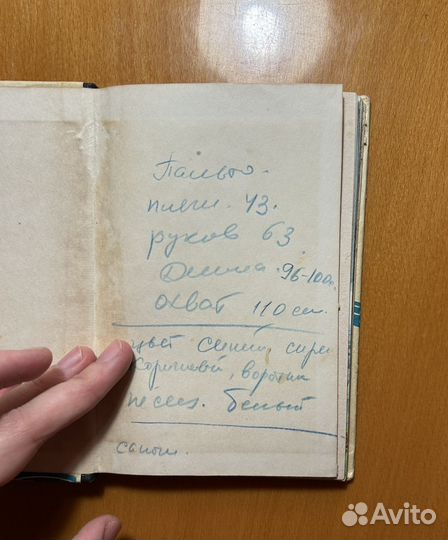 Пальто.
плечи. 43.
рукав 63
Длина. 96-100
охват 110 см.
цвет синий, серы
коричневый, воротник
песец. белый
сапоги.
Avito